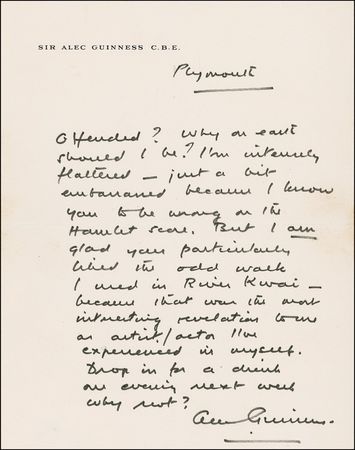 SIR ALEC GUINNESS C.B.E.
Plymouth
Offended? Why on earth
should I be? I'm intensely
flattered – just a bit
embarrassed because I know
you to be wrong on the
Hamlet score. But I am
glad you particularly
liked the odd walk
I used in River Kwai –
because that was the most
interesting revelation to me
as artist/actor I've
experienced in myself.
Drop in for a drink
one evening next week
why not?
Alec Guinness.